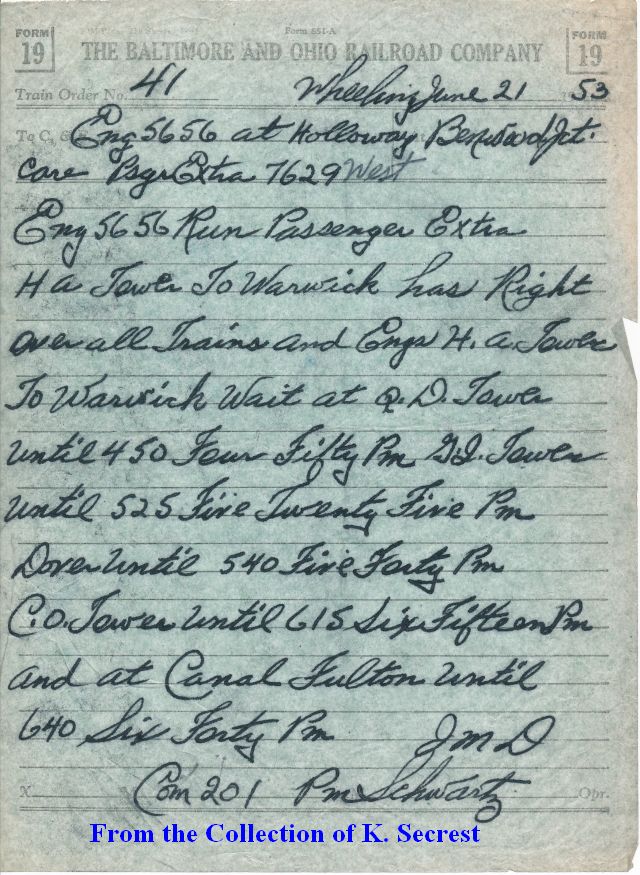 FORM 19 Form 551-A FORM 19
THE BALTIMORE AND OHIO RAILROAD COMPANY
Train Order No. 41 Wheeling June 21 53
To C, & E Eng 5656 at Holloway Benwood Jct.
care Psgr Extra 7629 West
Eng 5656 Run Passenger Extra
H a Tower To Warwick has Right
over all Trains and Engs H. a. Tower
To Warwick Wait at Q. D. Tower
until 450 Four Fifty Pm G.I. Tower
until 525 Five Twenty Five Pm
Dover until 540 Five Forty Pm
C.O. Tower until 615 Six Fifteen Pm
and at Canal Fulton until
640 Six Forty Pm J M D
X Com 201 Pm Schwartz Opr.
From the Collection of K. Secrest